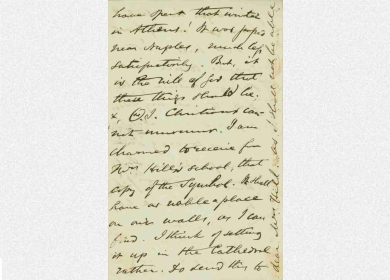 have spent that winter
in Athens! It was
near Naples, much less
satisfactorily. But, it
is the will of God that
these things should be
& O.J. Christians can
not murmur. I am
charmed to receive for
Mrs Hill's school, that
copy of the Symbol. It shall
have as noble a place
on our walls, as I can
find. I think of setting
it up in the Cathedral
rather. To send this to
dear Mrs Hill. as I shall not be able